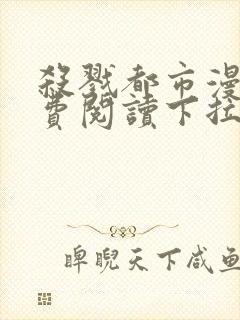 殺戮都市漫
費閱讀下拉
睥睨天下咸鱼